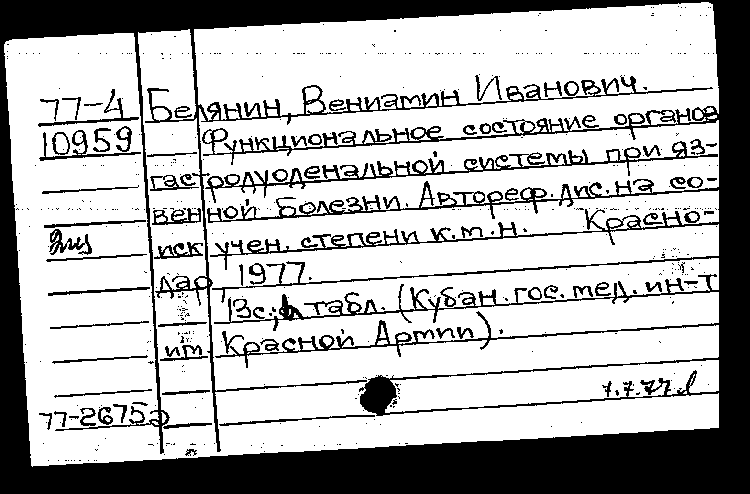 77-4 Белянин, Вениамин Иванович.
10959 Функциональное состояние органов
гастродуоденальной системы при яз-
венной болезни. Автореф. дис. на со-
2из иск. учен. степени к.м.н. Красно-
дар, 1977.
13с.; табл. (Кубан. гос. мед. ин-т
им. Красной Армии).
7.7.77
77-26752